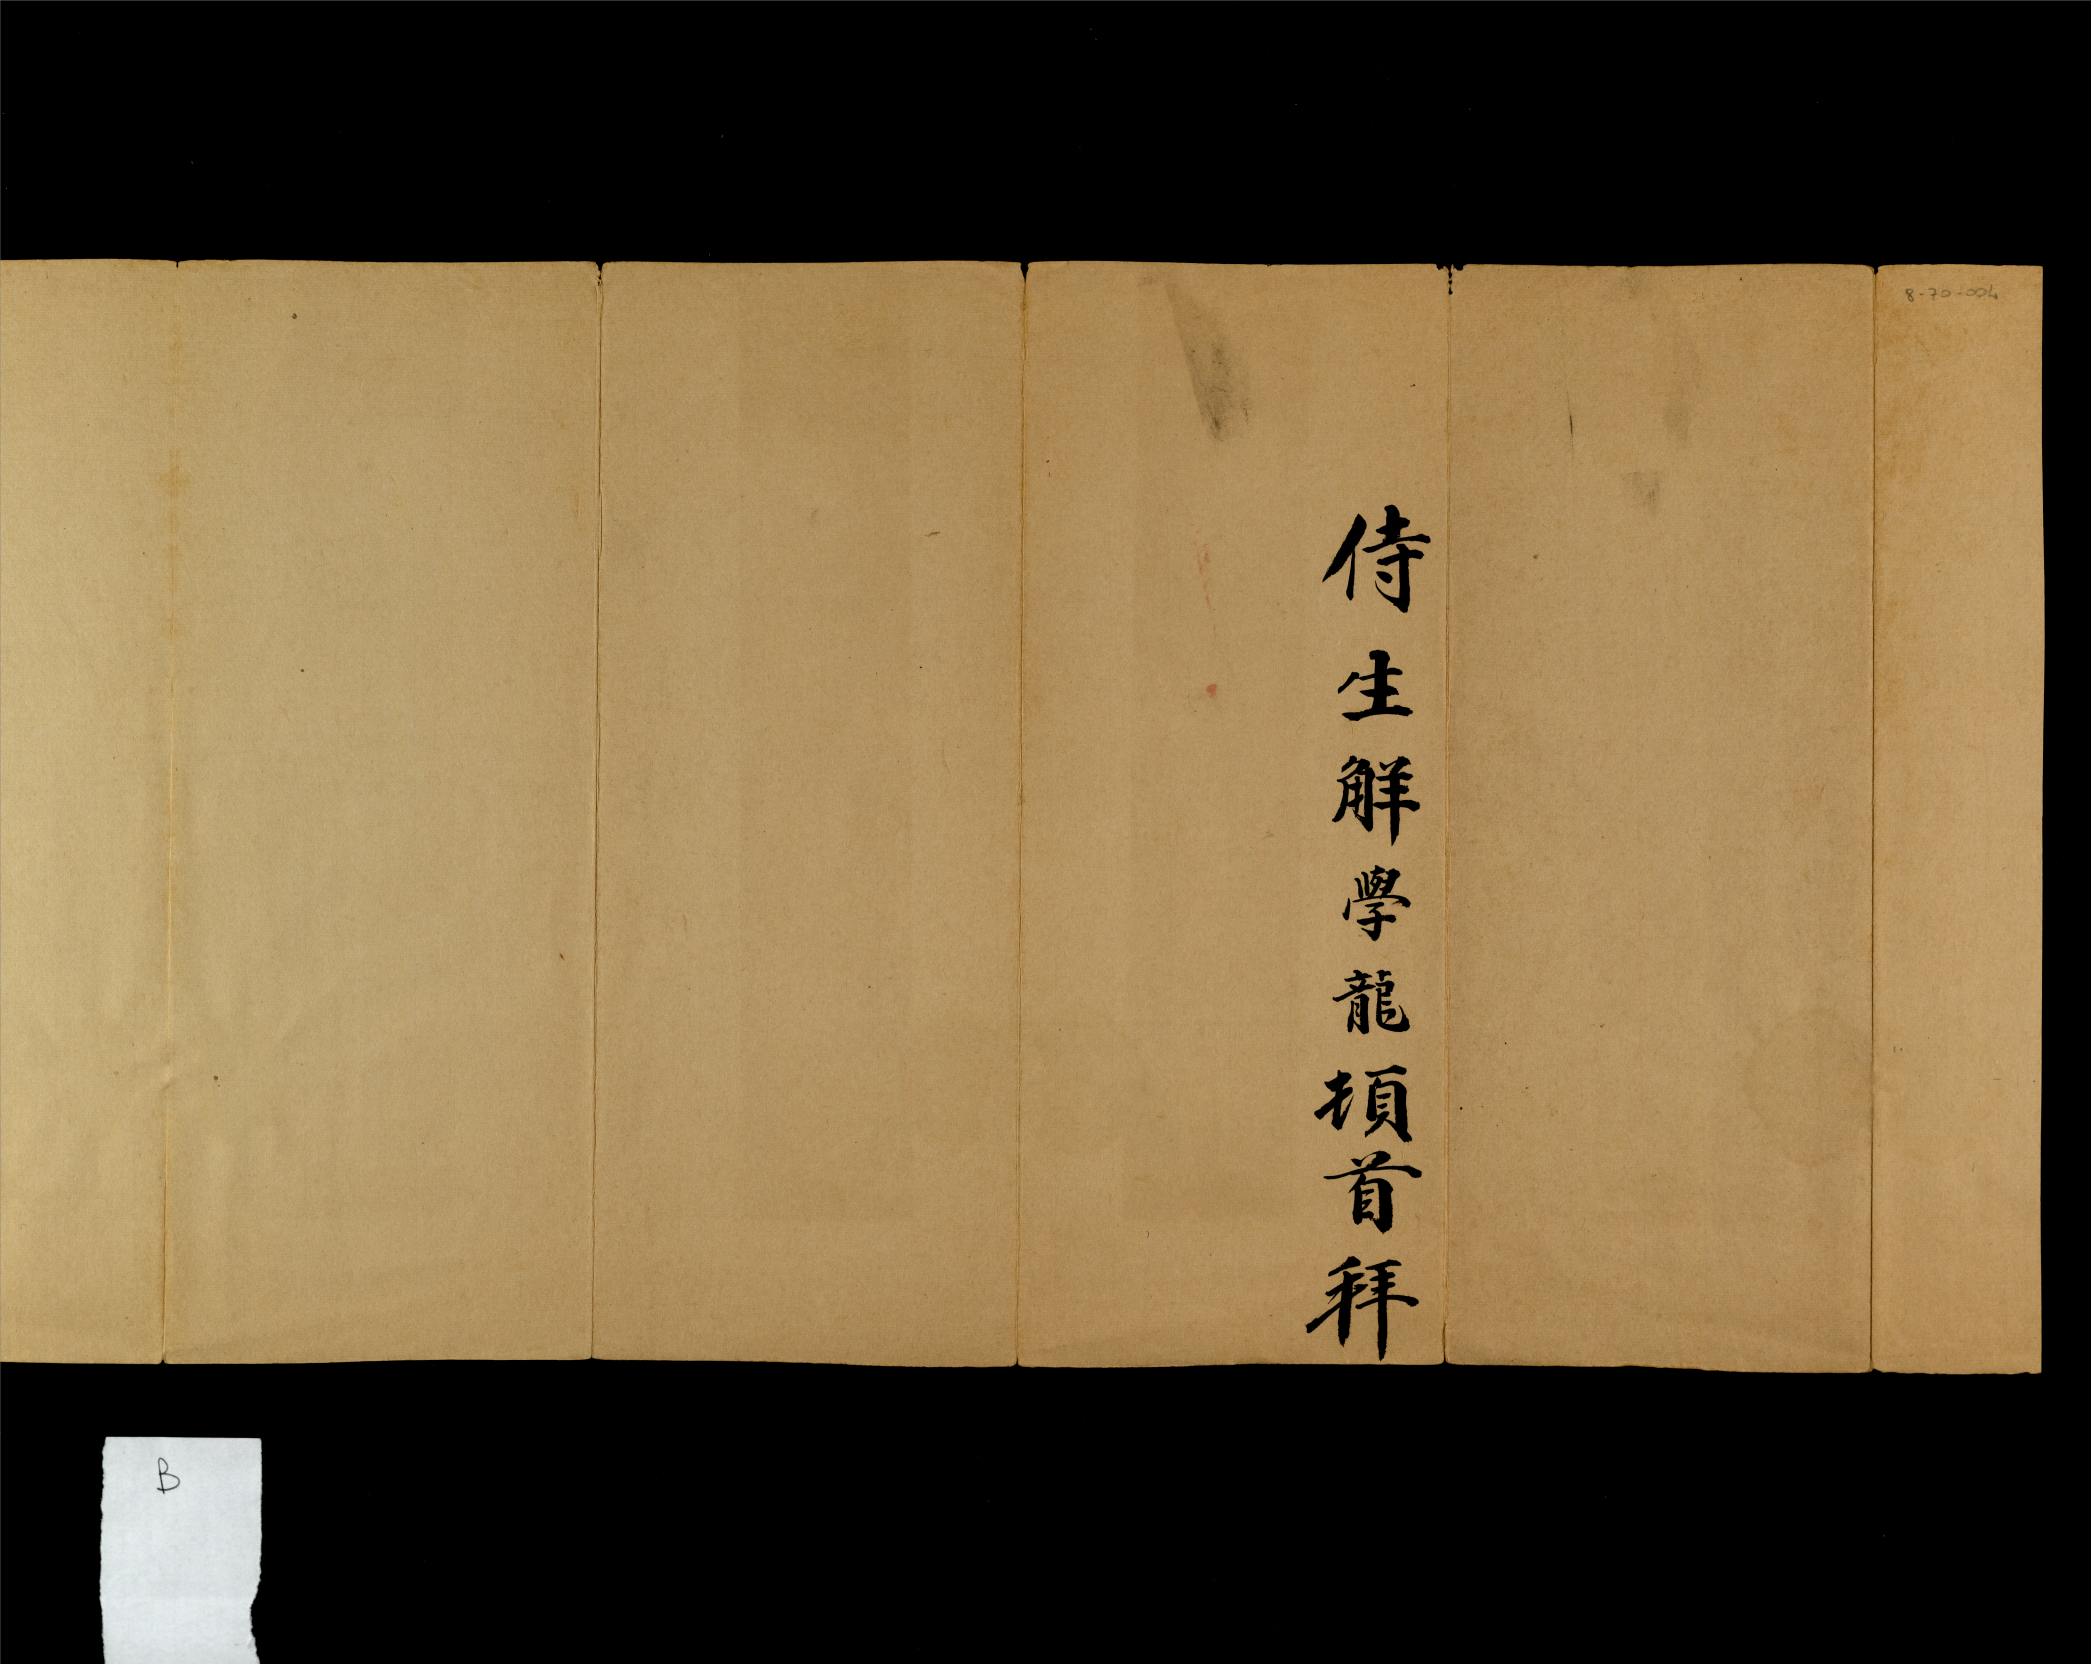 8-70-004
侍生觧學龍頓首拜
B